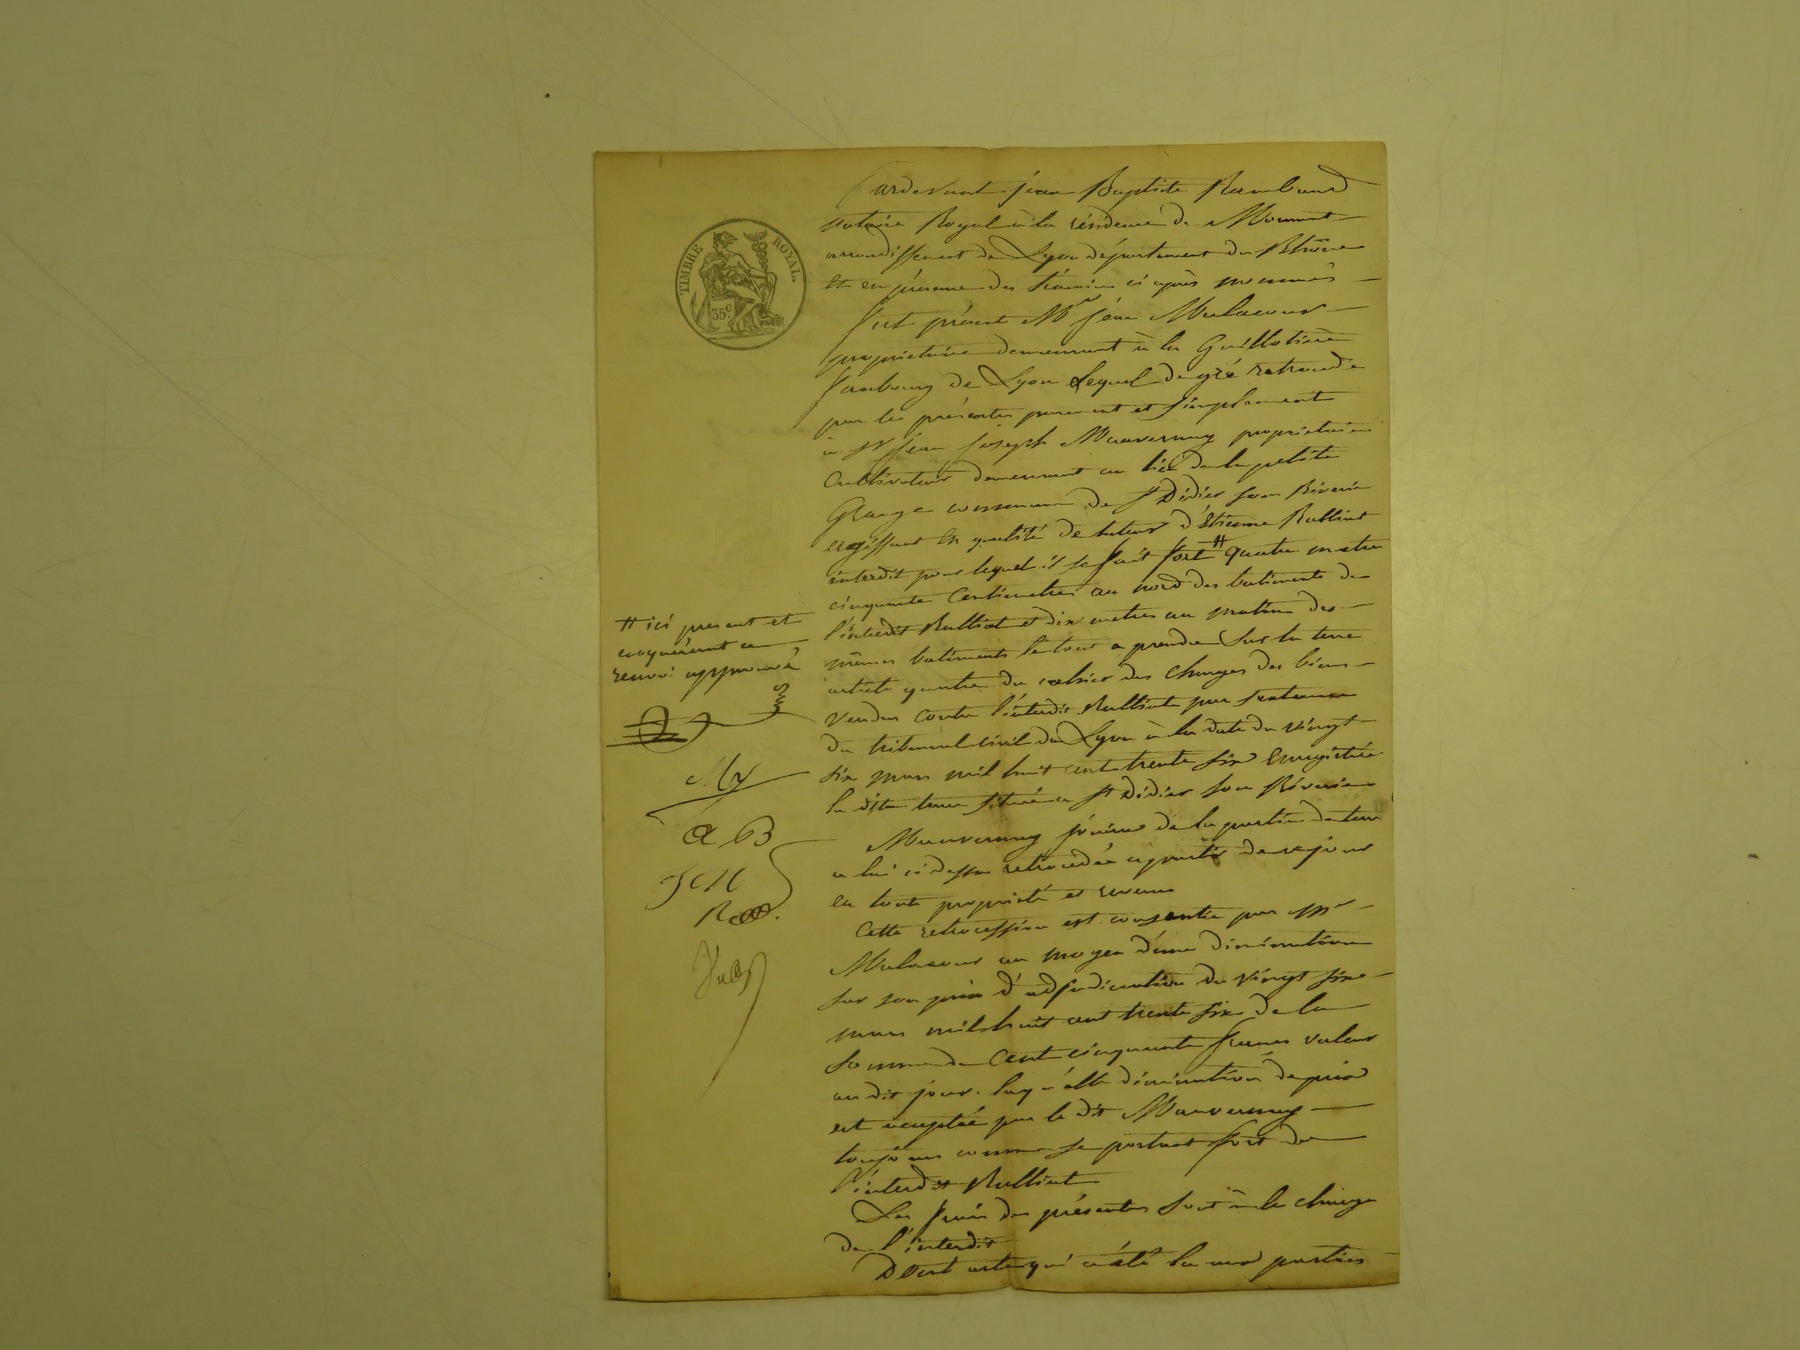 TIMBRE ROYAL.
35c
Pardevant jean Baptiste Rambaud
notaire Royal à la résidence de Mornant
arrondissement de Lyon département du Rhône
Et en présence des témoins ci après nommés
fut présent Mr jean Malacour
proprietaire demeurant à la Guillotière
faubourg de Lyon Lequel de gré retrocède
par les présentes purement et simplement
à Sr jean joseph Mauvernay proprietaire
Cultivateur demeurant au lieu de la petite
Grange commune de St Didier sous Riverie
agissant en qualité de tuteur d'Etienne Rulliat
interdit pour lequel il se fait fort # quatre metres
cinquante Centimetres au nord des batiments de
l'interdit Rulliat et dix metres au matin des
mêmes batiments le tout a prendre Sur la terre
article quatre du cahier des charges des biens
Vendus contre l'interdit Rulliat par Sentence
du tribunal Civil de Lyon à la date du vingt
six mars mil huit cent trente six Enregistrée
la dite terre située a St Didier sous Riverie
# ici present et
acquérant ce
renvoi approuvé
Mauvernay jouira de la partie de terre
a lui ci dessus retrocédée a partir de ce jour
en toute propriété et revenu
Cette retrocession est consentie par Mr
Malacour au moyen d'une diminution
sur son prix d'adjudication du vingt six
mars mil huit cent trente six de la
Somme de Cent cinquante francs valeur
au dit jour. laquelle diminution de prix
est acceptée par le dit Mauvernay
toujours comme se portant fort de
l'interdit Rulliat
Les frais des présentes sont à la charge
de l'interdit
Dont acte qui a été lu aux parties